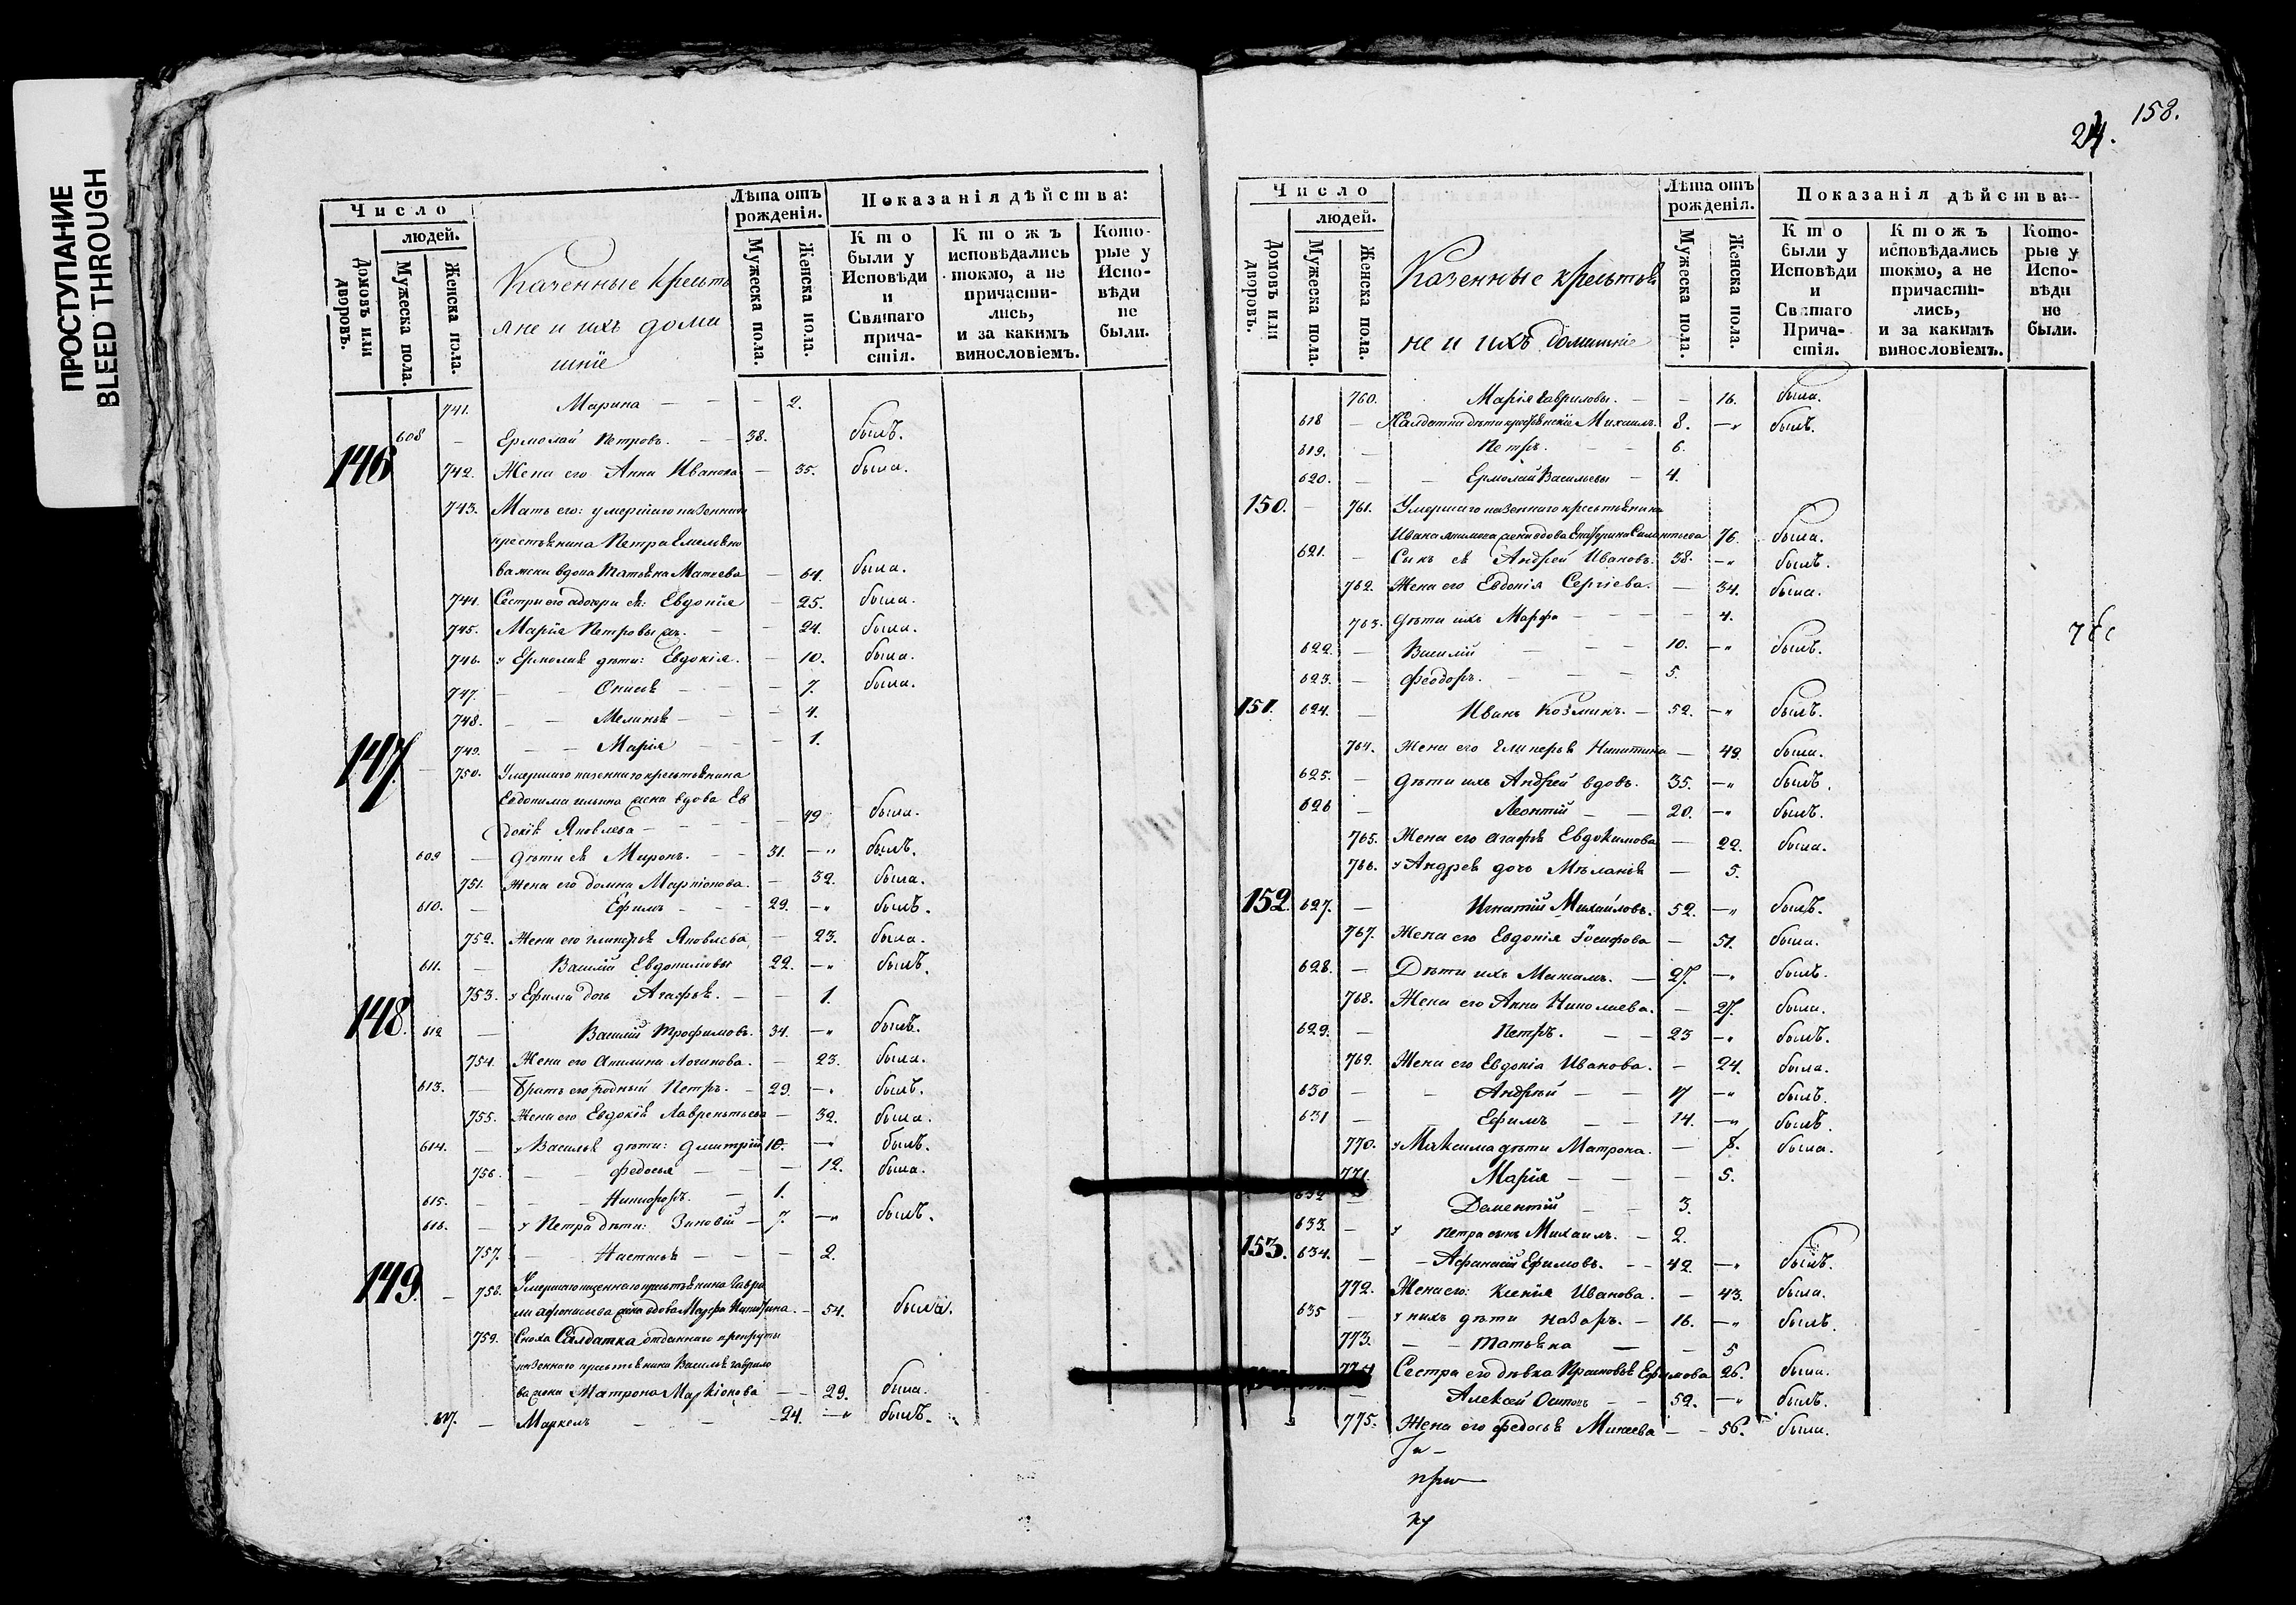 ПРОСТУПАНИЕ
BLEED THROUGH
Число
людей.
Домовъ или дворовъ.
Мужеска пола.
Женска пола.
Казенные крестья
яне и ихъ дома
шнiе
Лѣта отъ рожденiя.
Мужеска пола.
Женска пола.
Показанiя дѣйства:
Кто были у Исповѣди и Святаго причастiя.
Кто жъ исповѣдались токмо, а не причастились, и за какимъ винословiемъ.
Которые у Исповѣди не были.
741. Марина — — 2.
146 608 — Ермолай Петровъ. — 38. былъ.
742. Жена его Анна Иванова — 35. была.
743. Мать его: умершаго казеннаго
крестьянина Петра Емельяно
ва жена вдова Татьяна Матвеева — 64. была.
744. Сестры его а дочери ея: Евдокiя — 25. была.
745. Марiя Петровы — 24. была.
746. у Ермолая дѣти: Евдокiя. — 10. была.
747. — — — 7. была.
748. — — Меланья — — 4.
749. — — Марiя — 1.
147 — 750. Умершаго казеннаго крестьянина
Евдокима жена вдова Ев
докiя Яковлева — — 49 была.
609 — Дѣти ея Миронъ. — 31. —" былъ.
751. Жена его Домна Маркiонова. — 32. была.
610. — Ефимъ — — 29. —" былъ.
752. Жена его Гликерья Яковлева — 23. была.
611. — Василiй Евдокимовы 22. —" былъ.
753. у Ефима дочь Агафья. — — 1.
148. 612 — Василiй Трофимовъ. 34. —" былъ.
754. Жена его Акилина Логинова. — 23. была.
613. — Братъ его родный Петръ. — 29. —" былъ.
755. Жена его Евдокiя Лаврентьева — 32. была.
614. — у Василья дѣти: Дмитрiй 10. —" былъ.
756. — — Федосья — — 12. была.
615. — — Никифоръ. — 1.
616. — у Петра дѣти: Зиновiй — 7. —" былъ.
757. — Настасья — — 2.
149. — 758. Умершаго казеннаго крестьянина Гаври
ла Афонасьева жена вдова Марфа Никитина. — 54. была.
759. Сноха Салдатка отданнаго въ рекруты
казеннаго крестьянина Василья Гаврило
ва жена Матрона Маркiонова — 29. была.
617. — Маркелъ — — 24. —" былъ.
158.
24.
Число
людей.
Домовъ или дворовъ.
Мужеска пола.
Женска пола.
Казенные крестья
не и ихъ домашнiе
Лѣта отъ рожденiя.
Мужеска пола.
Женска пола.
Показанiя дѣйства:
Кто были у Исповѣди и Святаго Причастiя.
Кто жъ исповѣдались токмо, а не причастились, и за какимъ винословiемъ.
Которые у Исповѣди не были.
760. Марiя Гавриловы. — — 16. была.
618 — Салдатки дѣти Михаилъ. 8. —" былъ.
619. — Петръ. — — 6.
620. — — Ермолай Васильевы — 4.
150. — 761. Умершаго казеннаго крестьянина
Ивана жена вдова Екатерина 76. была.
621. — Сынъ ея Андрей Ивановъ. 38. —" былъ.
762. Жена его Евдокiя Сергiева. — 34. была.
763. Дѣти ихъ Марфа — — 4.
622. — Василiй — — 10. —" былъ.
623. — Феодоръ. — — 5.
151. 624. — Иванъ Козминъ. — 52. —" былъ.
764. Жена его Гликерья Никитина — 49. была.
625. — Дѣти ихъ Андрей вдовъ. 35. —" былъ.
626 — Леонтiй — 20. —" былъ.
765. Жена его Агафья Евдокимова — 22. была.
766. у Андрея дочь Мѣланiя — 5.
152 627. — Игнатiй Михайловъ. 52. —" былъ.
767. Жена его Евдокiя Iосифова — 51. была.
628. — Дѣти ихъ Максимъ. — 27. —" былъ.
768. Жена его Анна Николаева. — 27. была.
629. — Петръ. — — 23 —" былъ.
769. Жена его Евдокiя Иванова. — 24. была.
630 — — Андрѣй — — 17 —" былъ.
631 — Ефимъ — — 14. —" былъ.
770. у Максима дѣти Матрона. — 8. была.
771. Марiя — — 5.
632 — Дементiй — 3.
633. — у Петра сынъ Михаилъ. — 2.
153. 634. — Афанасiй Ефимовъ. — 42. —" былъ.
772. Жена его: Ксенiя Иванова. — 43. была.
635 — у нихъ дѣти Назаръ. — 16. —" былъ.
773. — Татьяна — — 5
774 Сестра его дѣвка Прасковья Ефимова 26. была.
— Алексей Осиповъ — 59. —" былъ.
775. Жена его Федосья Минеева — 56. была.